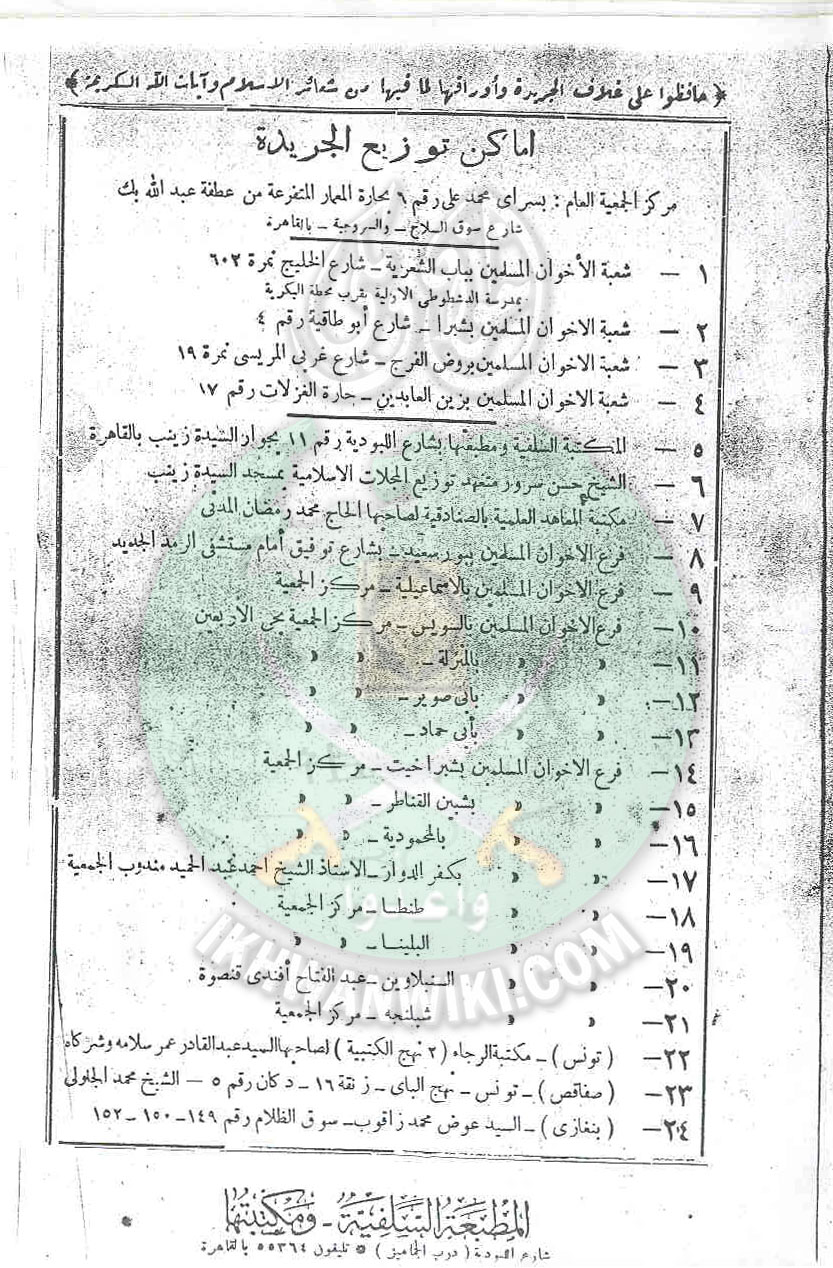 ﴿ حافظوا على غلاف الجريدة وأوراقها لما فيها من شعائر الاسلام وآيات الله الكريمة ﴾
اماكن توزيع الجريدة
مركز الجمعية العام : بسراى محمد على رقم ٦ بحارة المعمار المتفرعة من عطفة عبد الله بك
شارع سوق السلاح – والسروجية – بالقاهرة
١ – شعبة الأخوان المسلمين بباب الشعرية – شارع الخليج نمرة ٦٠٢
بمدرسة الدشطوطى الاولية بقرب محطة البكرية
٢ – شعبة الاخوان المسلمين بشبرا – شارع أبو طاقية رقم ٤
٣ – شعبة الاخوان المسلمين بروض الفرج – شارع غربى المريسى نمرة ١٩
٤ – شعبة الاخوان المسلمين بزين العابدين – حارة الغزلات رقم ١٧
٥ – المكتبة السلفية ومطبعتها بشارع اللبودية رقم ١١ بجوار السيدة زينب بالقاهرة
٦ – الشيخ حسن سرور متعهد توزيع المجلات الاسلامية بمسجد السيدة زينب
٧ – مكتبة المعاهد العلمية بالصنادقية لصاحبها الحاج محمد رمضان المدنى
٨ – فرع الاخوان المسلمين ببور سعيد – بشارع توفيق أمام مستشفى الرمد الجديد
٩ – فرع الاخوان المسلمين بالاسماعيلية – مركز الجمعية
١٠ – فرع الاخوان المسلمين بالسويس – مركز الجمعية بحى الأربعين
١١ – » » بالمنزلة – » »
١٢ – » » بأبى صوير – » »
١٣ – » » بأبى حماد – » »
١٤ – فرع الاخوان المسلمين بشبراخيت – مركز الجمعية
١٥ – » » بشبين القناطر – » »
١٦ – » » بالمحمودية – » »
١٧ – » » بكفر الدوار – الاستاذ الشيخ احمد عبد الحميد مندوب الجمعية
١٨ – » » طنطا – مركز الجمعية
١٩ – » » البلينا – » »
٢٠ – » » السنبلاوين – عبد الفتاح أفندى قنصوة
٢١ – » » شبلنجه – مركز الجمعية
٢٢ – ( تونس ) – مكتبة الرجاء ( ٢ نهج الكتبية ) لصاحبها السيد عبد القادر عمر سلامه وشركاه
٢٣ – ( صفاقص ) – تونس – نهج الباى – زنقة ١٦ – دكان رقم ٥ – الشيخ محمد الجلولى
٢٤ – ( بنغازى ) – السيد عوض محمد زاقوب – سوق الظلام رقم ١٤٩ – ١٥٠ – ١٥٢
المطبعة السلفية – ومكتبتها
شارع اللبودية ( درب الجماميز ) تليفون ٥٥٣٦٤ بالقاهرة
واعدوا
IKHWANWIKI.COM